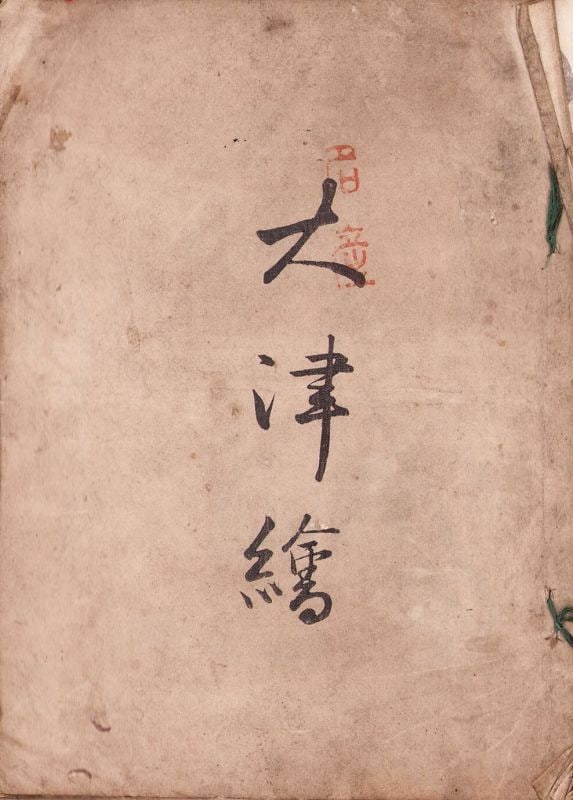 大津繪